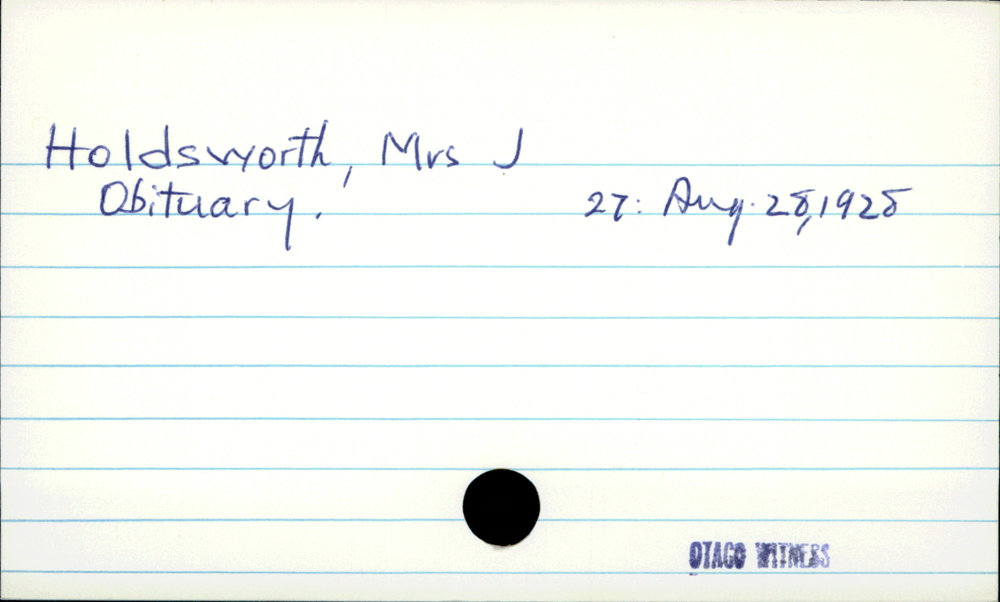 Holdsworth, Mrs J
Obituary. 27: Aug. 28, 1928
OTAGO WITNESS